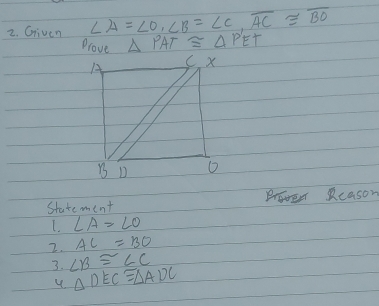 2. Given ∠A = ∠O, ∠B = ∠C, AC ≅ BO
Prove △ PAT ≅ △ PET
A C X
B D O
Statement Reason
1. ∠A = ∠O
2. AC = BO
3. ∠B ≅ ∠C
4. △ DEC ≅ △ADC